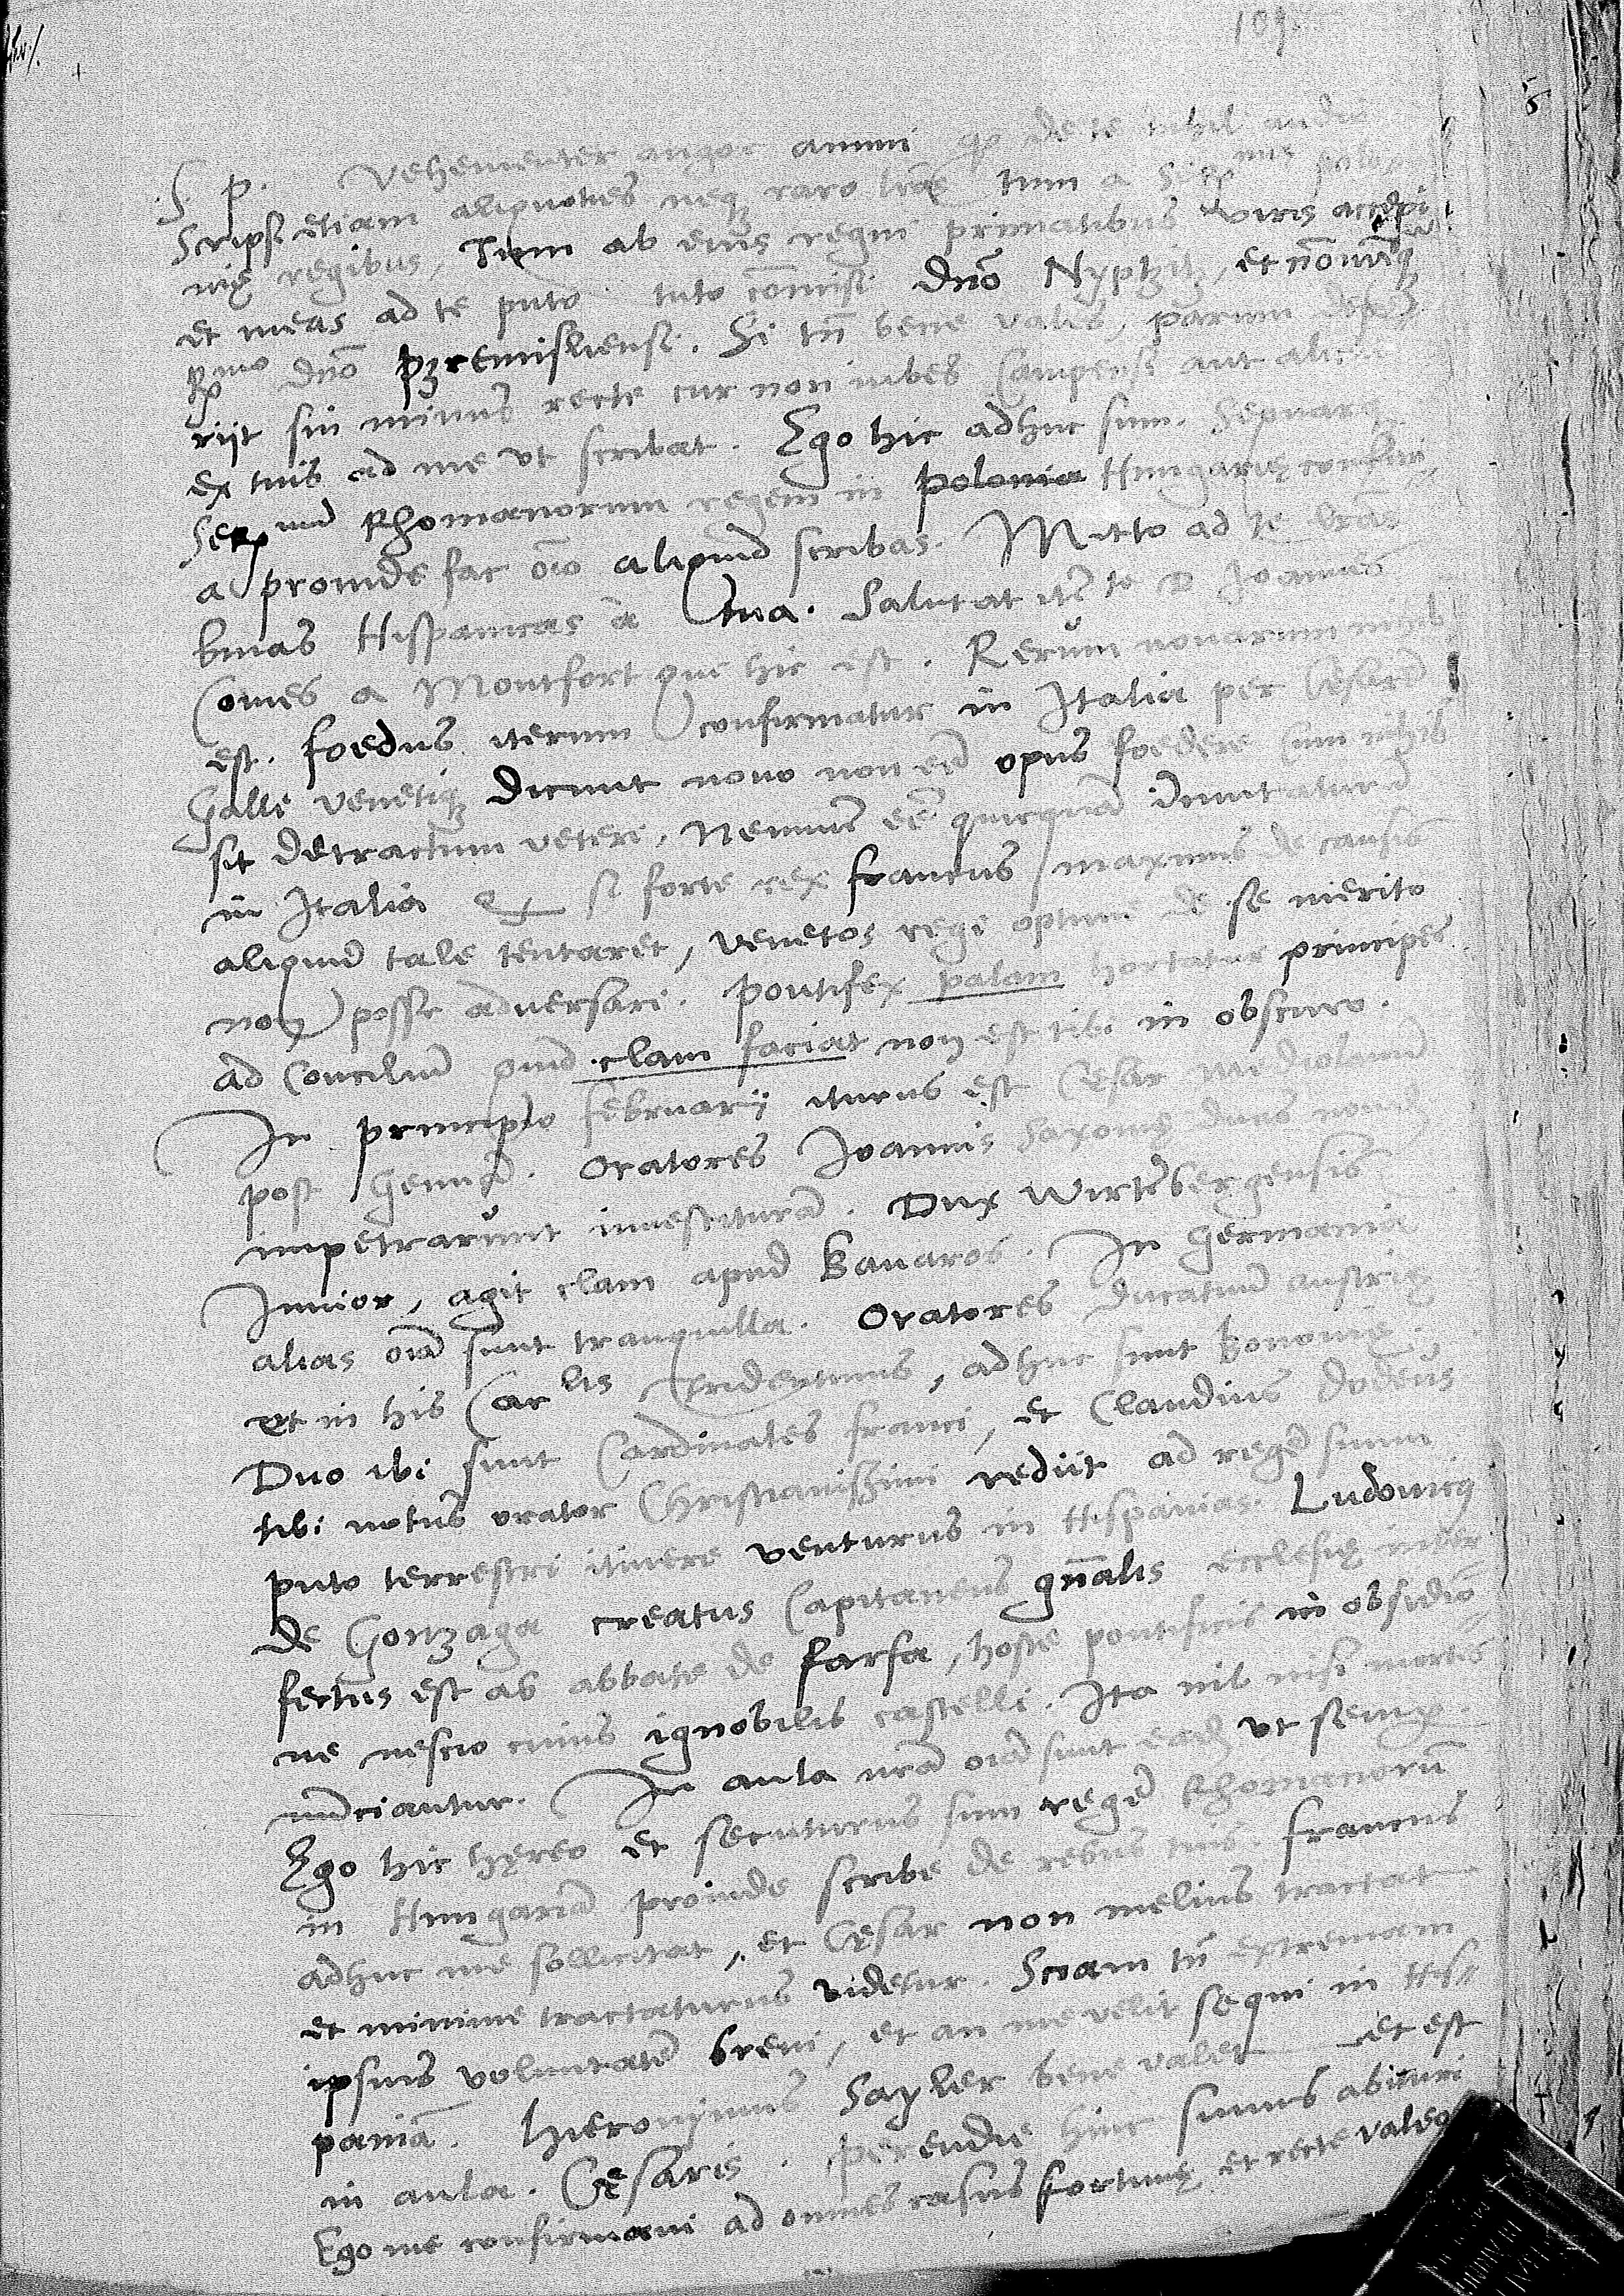 109
S. p. Vehementer angor animi q de te nihil audio
Scripsi etiam aliquoties neq raro lras tum a Ser mis polo
nię regibus, Tum ab eius regni primatibus viris accepi
et meas ad te puto tuto comisi Dno Nyptzitz, et
Rmo dno przemisliensi. Si tn bene vales, parum
rijt sin minus recte cur non iubes Campensi aut alicui
ex tuis ad me vt scribat. Ego hic adhuc sum.
Ser mu Rhomanorum regem in polonia Hungarię
a proinde fac oio aliquid scribas. Mitto ad te lras
binas Hispanicas a tua. Salutat te D Joannes
Comes a Montfort que hic est. Rerum nouarum nihil
est. foedus iterum confirmatur in Italia per Cesare
Galli venetiq Dicunt nouo non ee opus foedere Cum nihil
sit detractum veteri, Neminẽ eẽ quicquã
in Italia Et si forte rex francus maximis de causis
aliquid tale tentaret, venetos regi optime de se merito
non posse aduersari. pontifex palam hortatur principes
ad Conciliũ quid clam faciat non est tibi in obscuro.
In principio februarij iturus est Cesar mediolanũ
post Genuã. Oratores Joannis Saxonię
impetrarunt inuestiturã. Dux Wirtẽbergensis
Junior, agit clam apud Bauaros. In Germania
alias oĩa sunt tranquilla. Oratores Ducatuũ austrię
et in his Car lis Tridentinus, adhuc sunt Bononię.
Duo ibi sunt Cardinales franci, et Claudius Dodeus
tibi notus orator Christianissimi rediit ad regẽ suum
puto terrestri itinere venturus in Hispanias. Ludouicus
de Gonzaga creatus Capitaneus gñalis ecclesię inter
fectus est ab abbate de farsa, hoste pontificis in obsidio
ne nescio cuius ignobilis castelli. Ita nil nisi mortes
nũciantur. In aula nrã oĩa sunt eadẽ vt semp.
Ego hic hęreo et secuturus sum regẽ Rhomanorũ
in Hungariã proinde scribe de rebus tuis. francus
adhuc me sollicitat, et Cęsar non melius tractat
et minime tractaturus videtur. Sciam tñ extremam
ipsius voluntatẽ breui, et an me velit sequi in His
paniã. Hieronymus Sayler bene valet et est
in aula Cęsaris. perendie hinc sumus abituri
Ego me confirmaui ad omnes casus fortunę et recte valeo